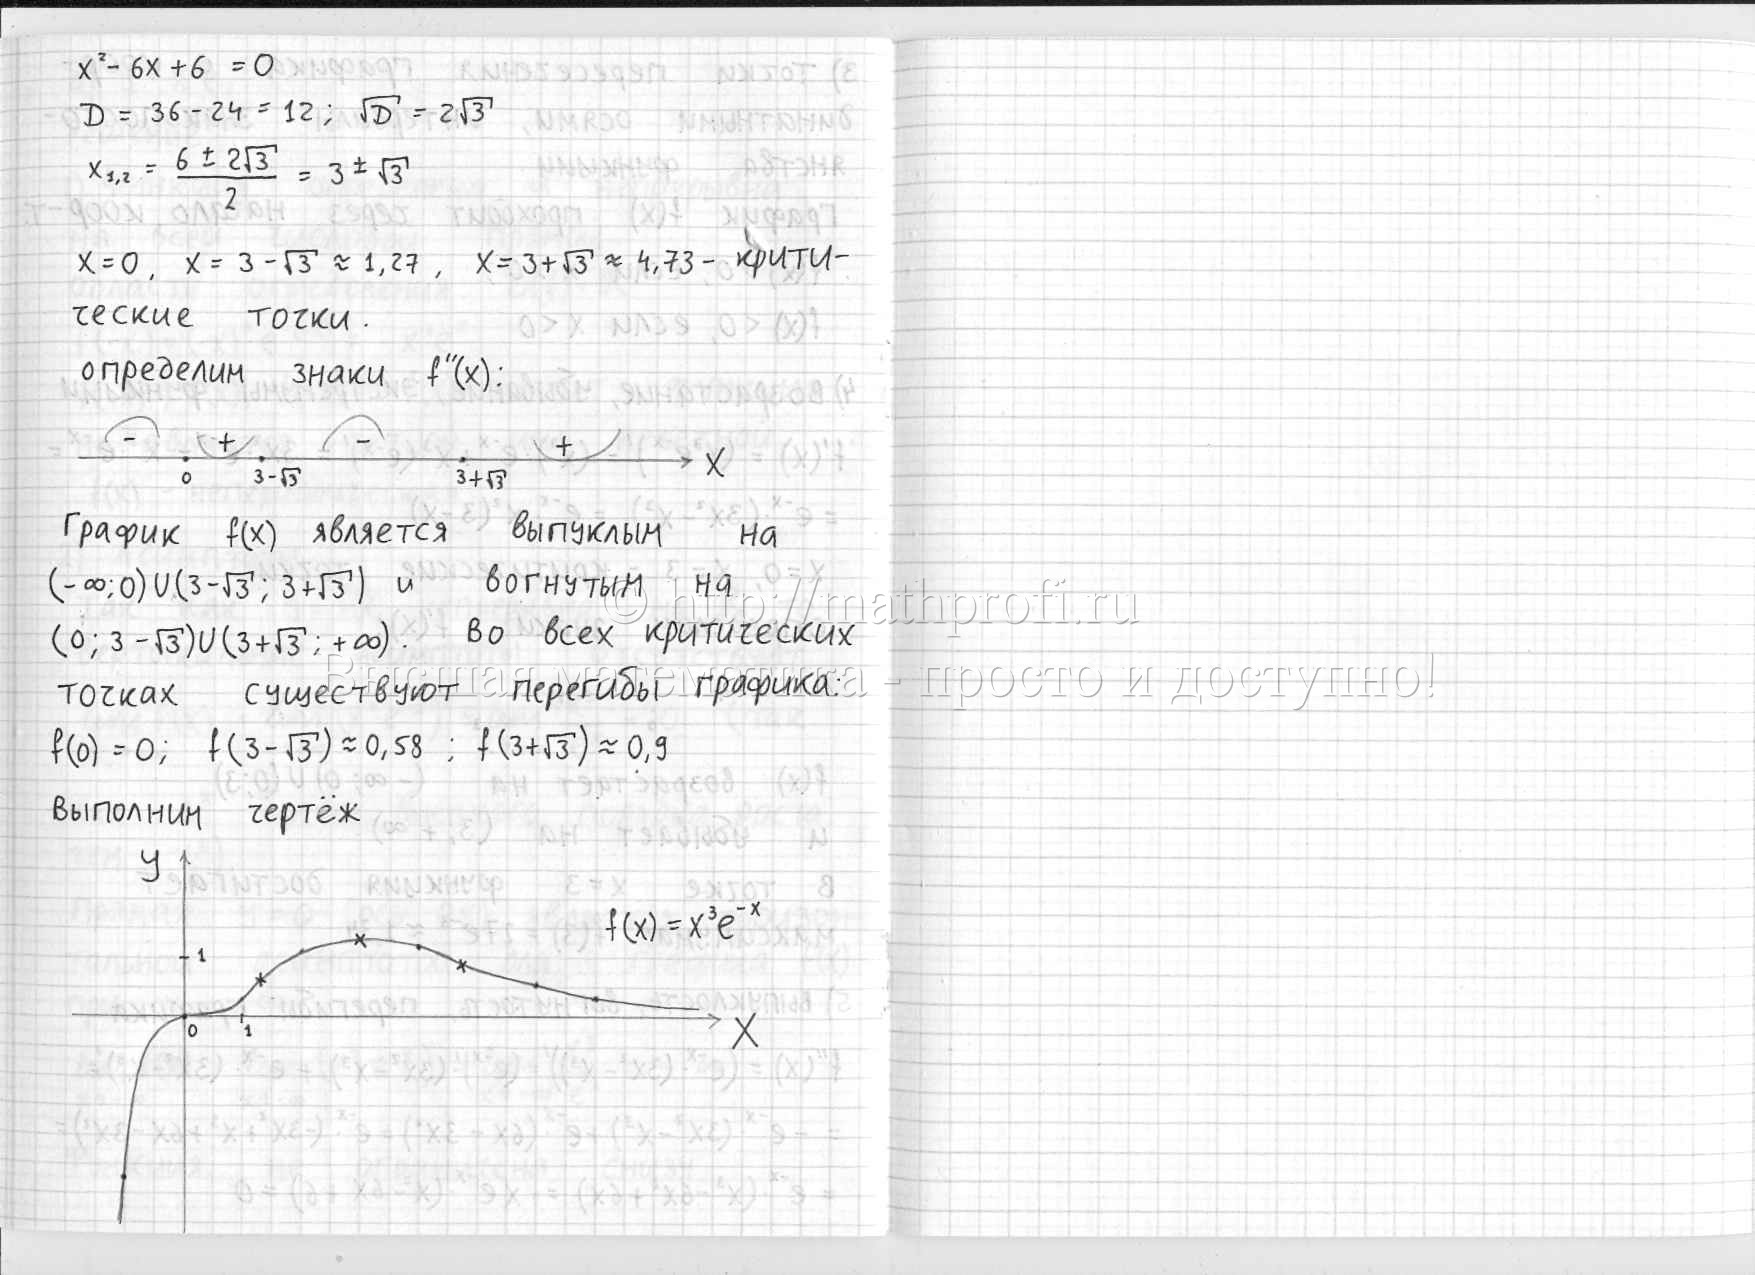 x² - 6x + 6 = 0
D = 36 - 24 = 12; √D = 2√3
x₁,₂ = (6 ± 2√3)/2 = 3 ± √3
x = 0, x = 3 - √3 ≈ 1,27, x = 3 + √3 ≈ 4,73 - крити-
ческие точки.
определим знаки f''(x):
- + - +
0 3-√3 3+√3 X
График f(x) является выпуклым на
(-∞; 0) U (3-√3; 3+√3) и вогнутым на
(0; 3-√3) U (3+√3; +∞). Во всех критических
точках существуют перегибы графика:
f(0) = 0; f(3-√3) ≈ 0,58; f(3+√3) ≈ 0,9
Выполним чертёж
y
f(x) = x³e⁻ˣ
1
0 1 X
© http://mathprofi.ru
Высшая математика - просто и доступно!